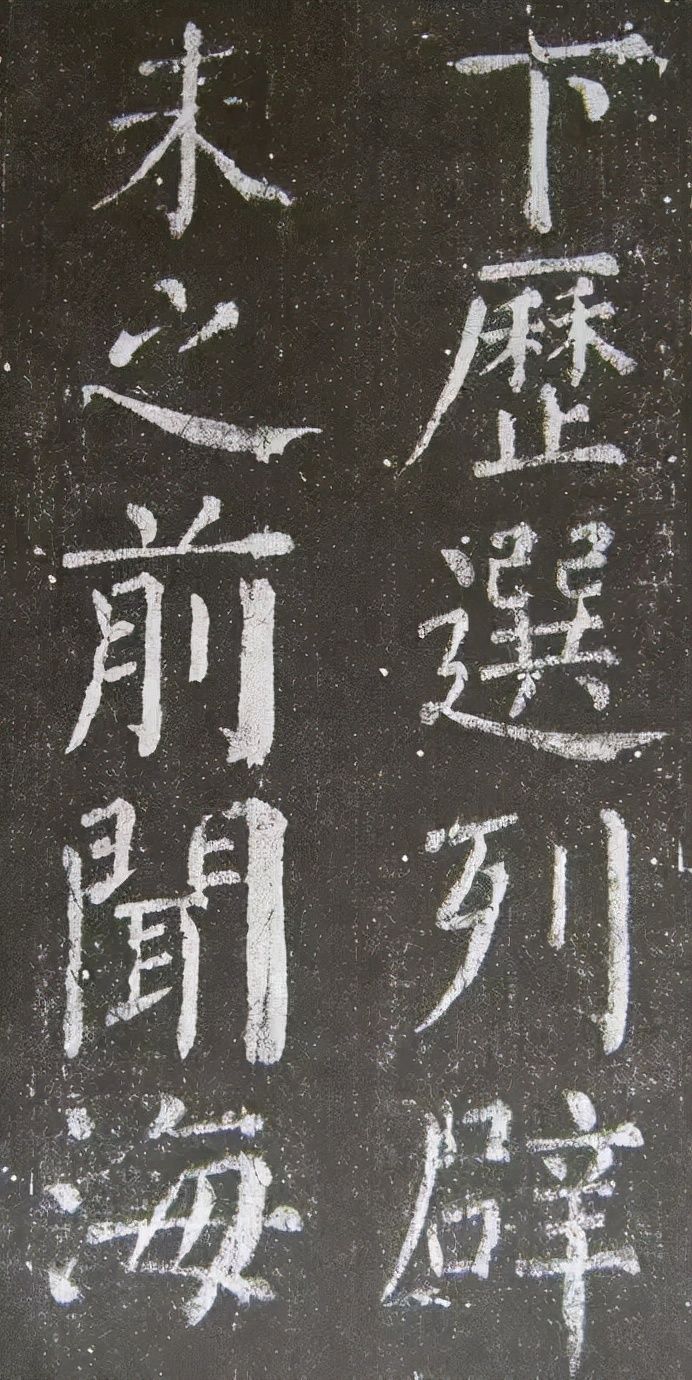 下歷選列辟
未之前聞海